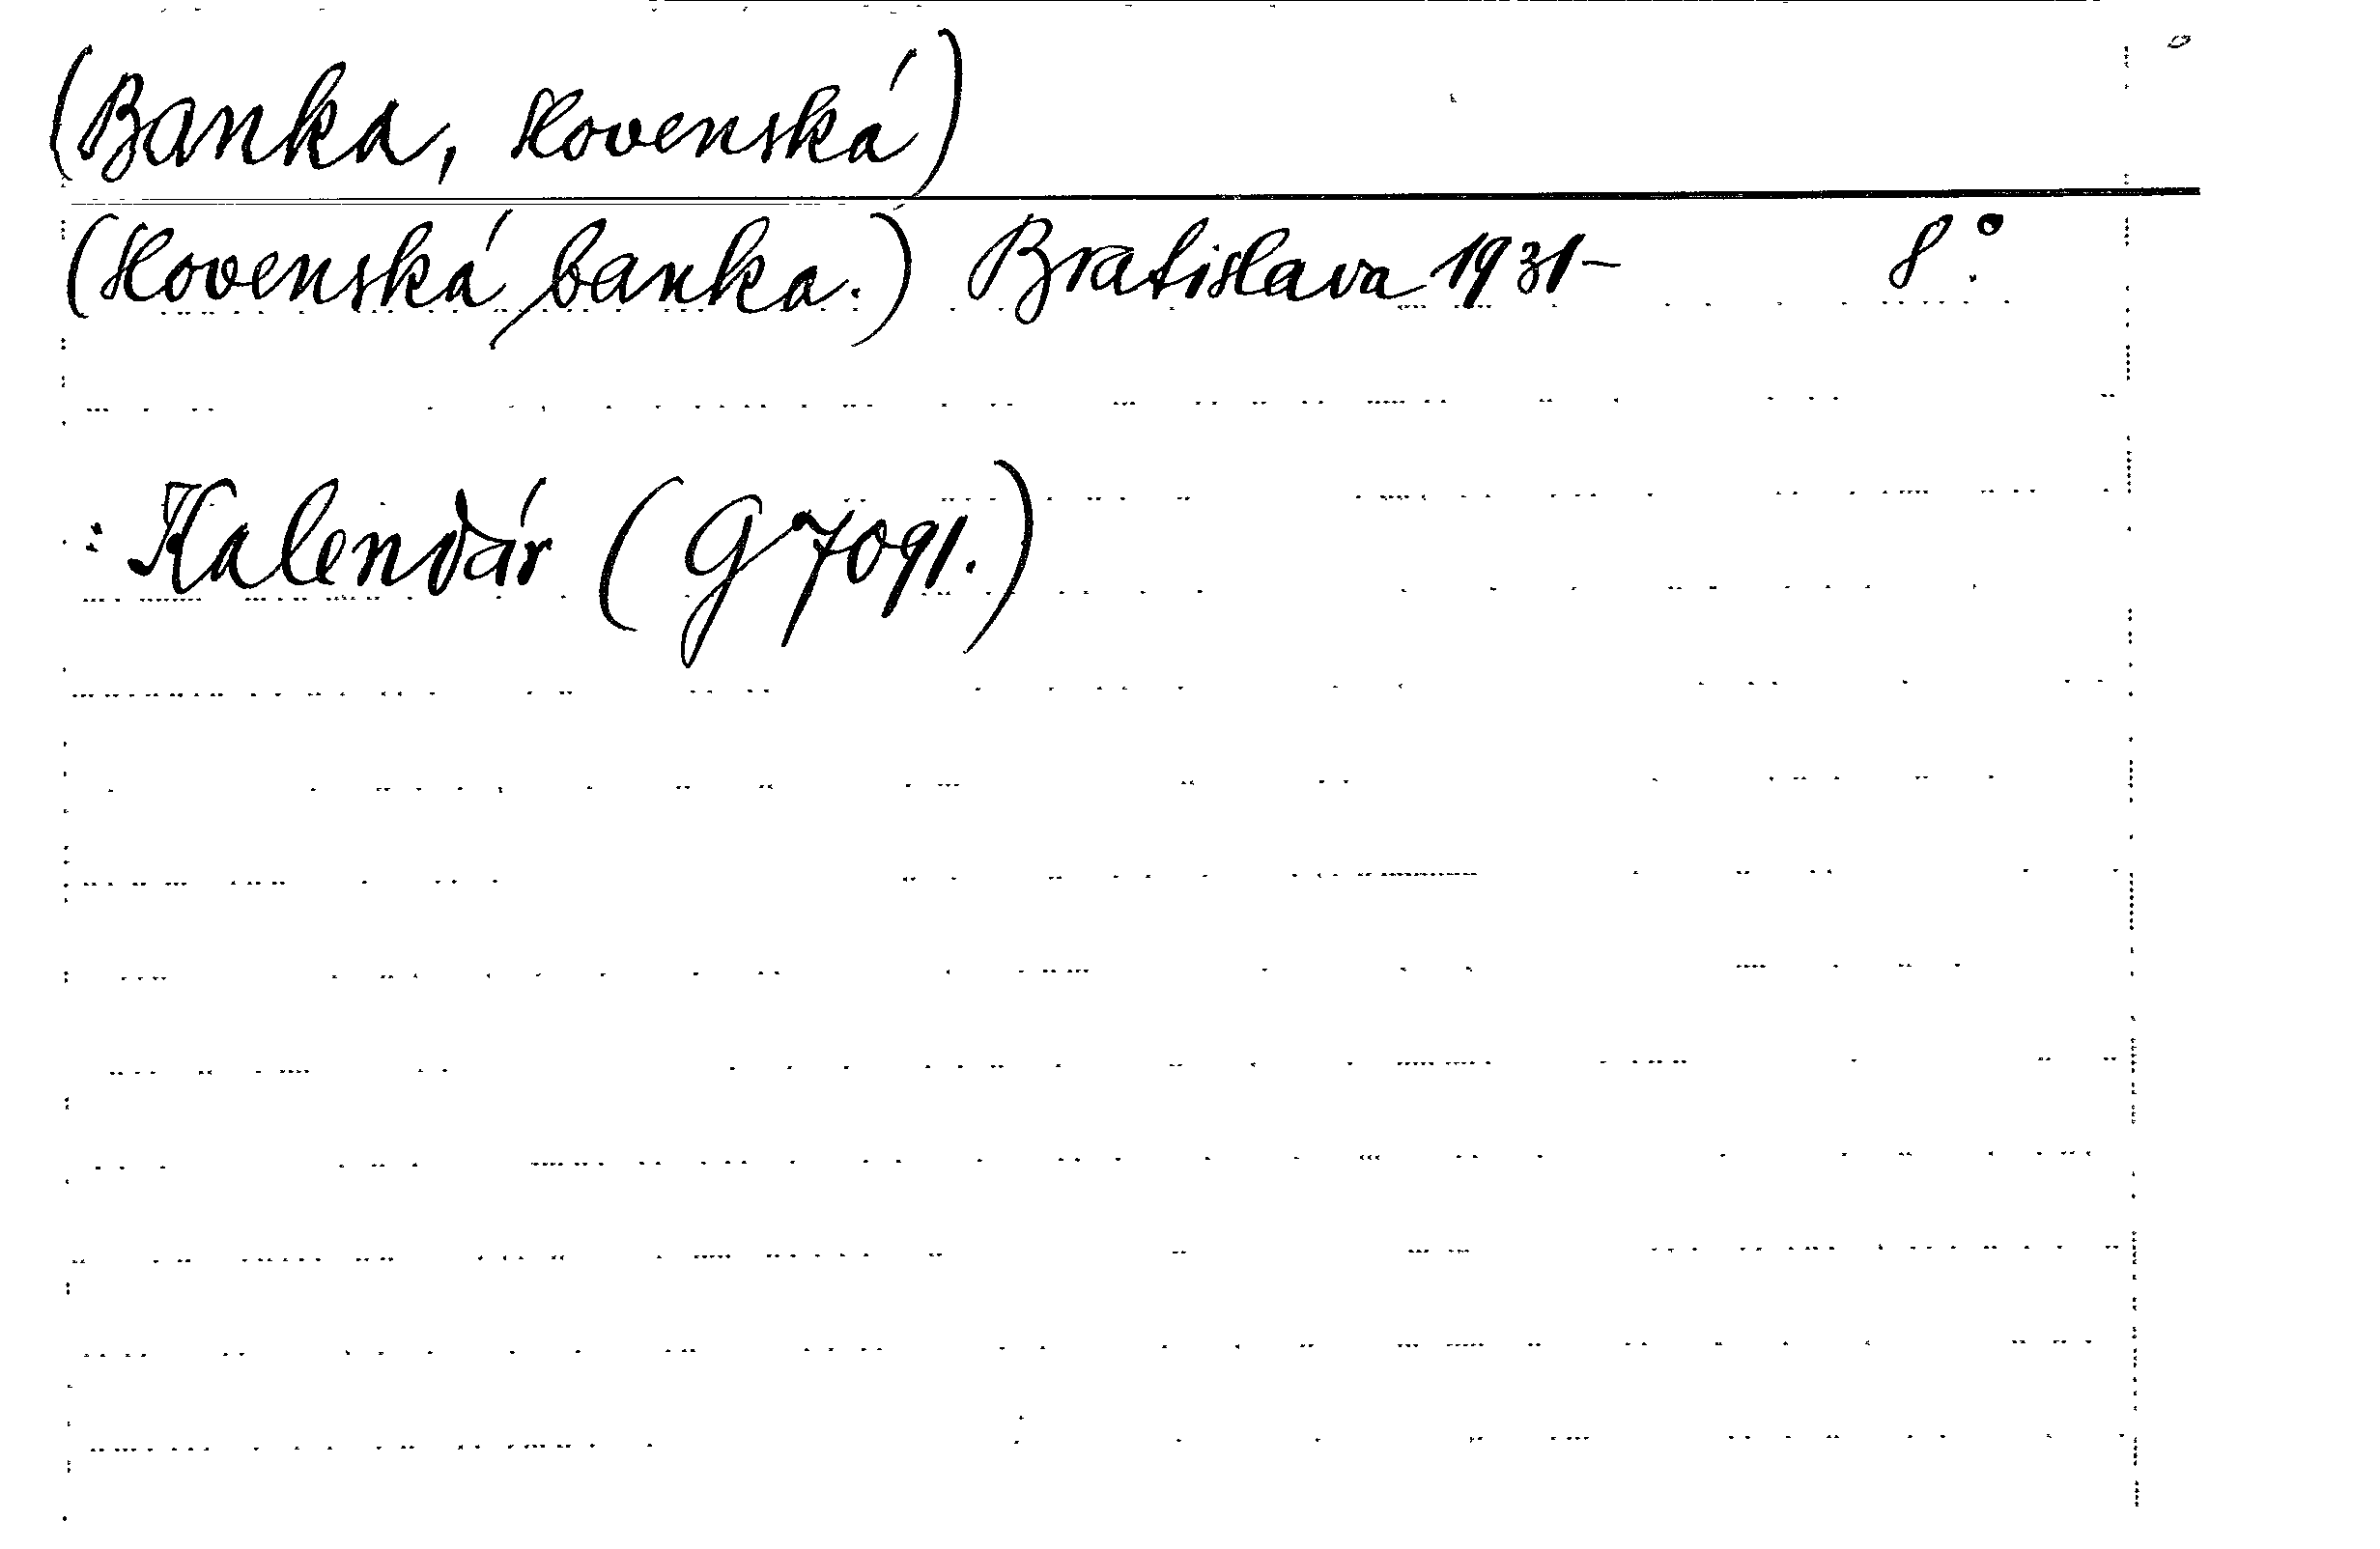 (Banka, Slovenská)
(Slovenská banka.) Bratislava 1931- 8°.
: Kalendár (G 7091.)